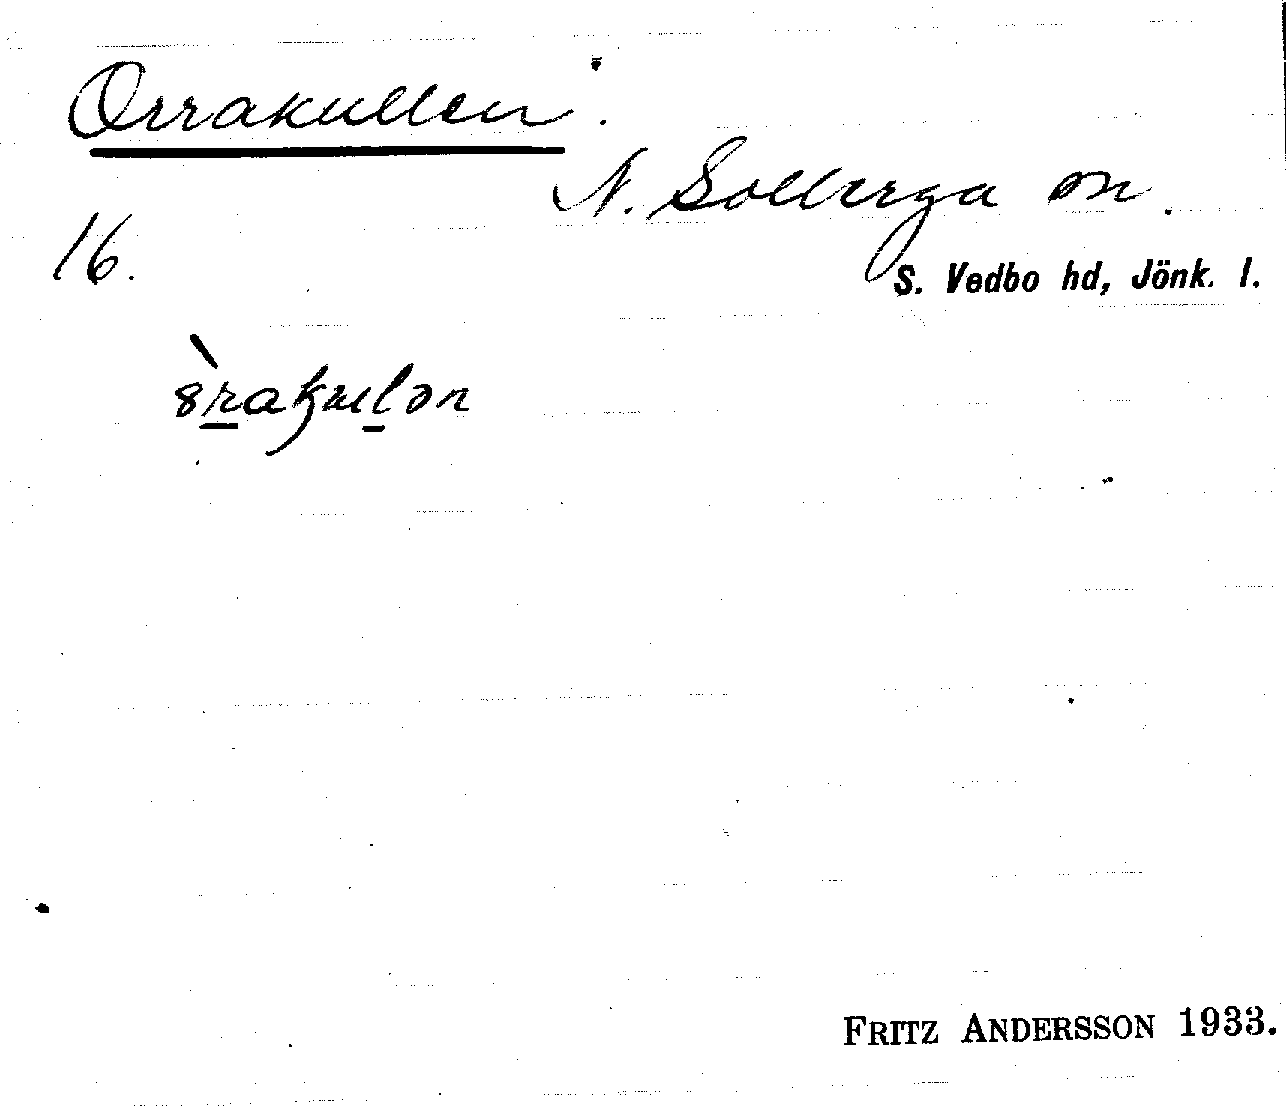 Orrakullen.
N. Solberga sn.
16.
S. Vedbo hd, Jönk. l.
FRITZ ANDERSSON 1933.